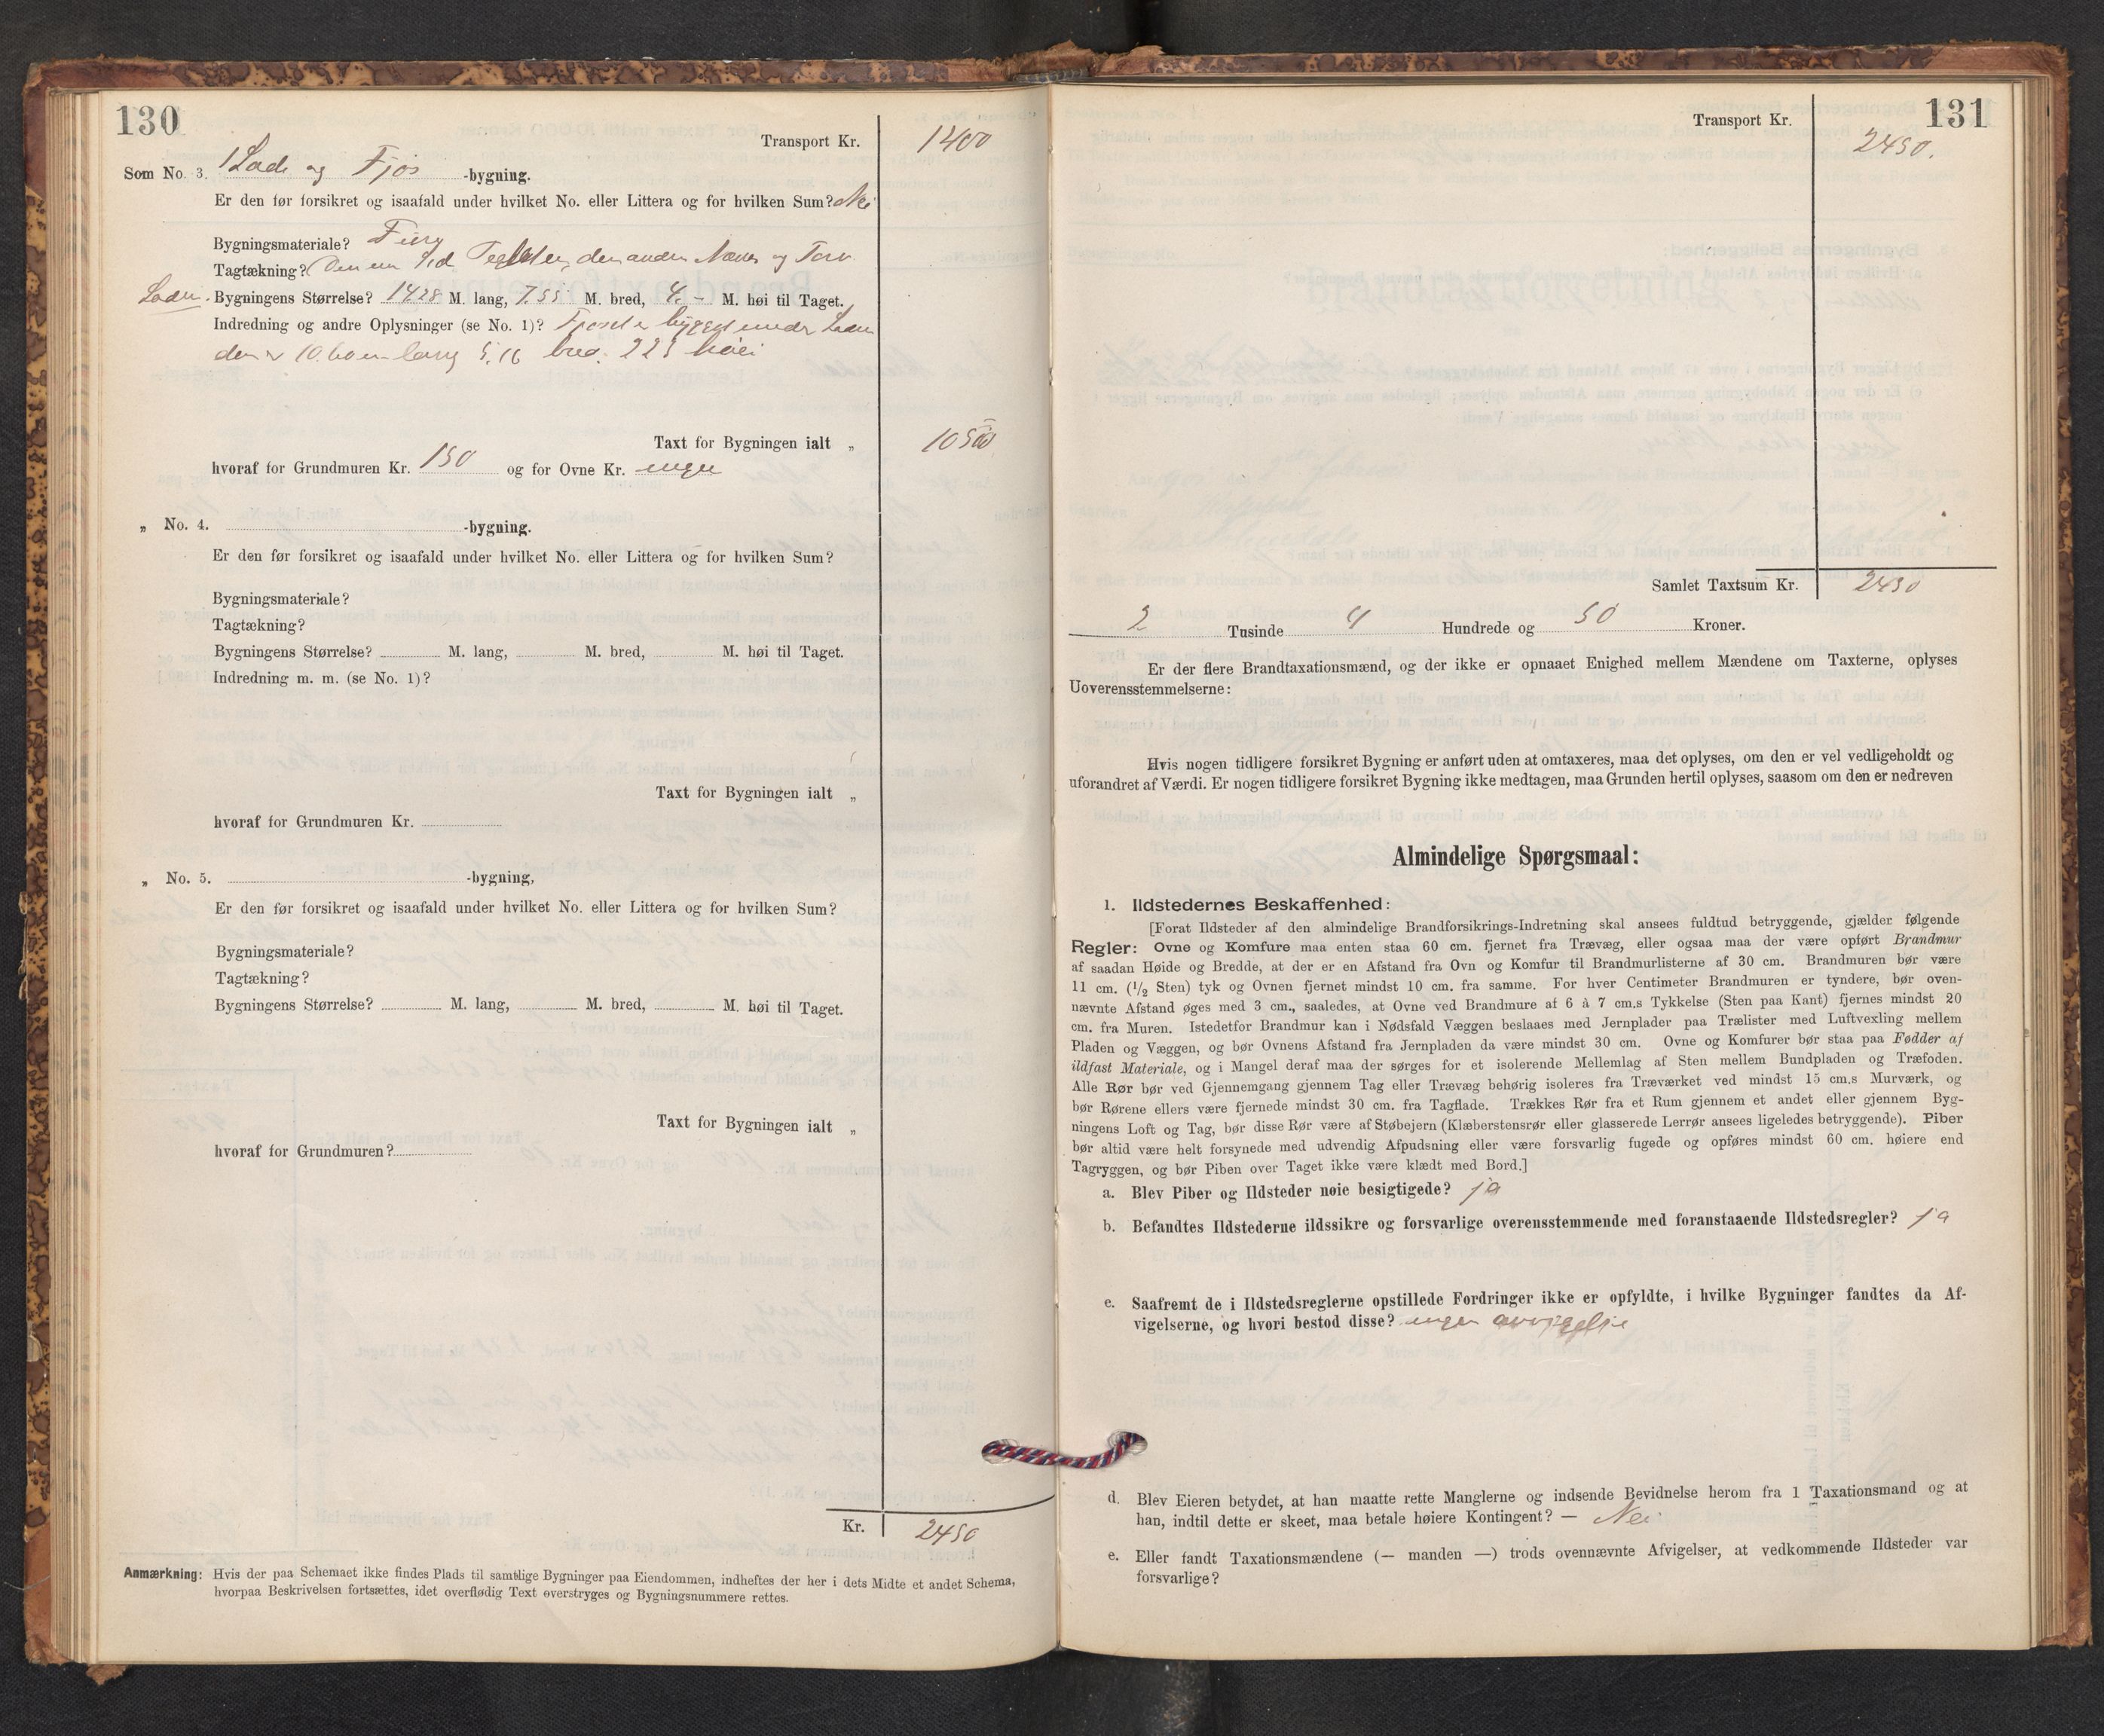 130
Transport Kr. 1400
Som No. 3. 1 Lade og Fjøs -bygning.
Er den før forsikret og isaafald under hvilket No. eller Littera og for hvilken Sum? Nei
Bygningsmateriale? Furu
Tagtækning? Den ene Sid Teglsten, den anden Næver og Torv
Laden. Bygningens Størrelse? 14.28 M. lang, 7.55 M. bred, 4.- M. høi til Taget.
Indredning og andre Oplysninger (se No. 1)? Fjøset er bygget under Laden
den er 10.60 m lang 5.16 bred. 223 høi
Taxt for Bygningen ialt „ 1050
hvoraf for Grundmuren Kr. 150 og for Ovne Kr. ingen
„ No. 4. -bygning.
Er den før forsikret og isaafald under hvilket No. eller Littera og for hvilken Sum?
Bygningsmateriale?
Tagtækning?
Bygningens Størrelse? M. lang, M. bred, M. høi til Taget.
Indredning m. m. (se No. 1)?
Taxt for Bygningen ialt „
hvoraf for Grundmuren Kr.
„ No. 5. -bygning,
Er den før forsikret og isaafald under hvilket No. eller Littera og for hvilken Sum?
Bygningsmateriale?
Tagtækning?
Bygningens Størrelse? M. lang, M. bred, M. høi til Taget.
Taxt for Bygningen ialt „
hvoraf for Grundmuren?
Kr. 2450
Anmærkning: Hvis der paa Schemaet ikke findes Plads til samtlige Bygninger paa Eiendommen, indheftes der her i dets Midte et andet Schema,
hvorpaa Beskrivelsen fortsættes, idet overflødig Text overstryges og Bygningsnummere rettes.
131
Transport Kr. 2450.
Samlet Taxtsum Kr. 2450
2 Tusinde 4 Hundrede og 50 Kroner.
Er der flere Brandtaxationsmænd, og der ikke er opnaaet Enighed mellem Mændene om Taxterne, oplyses
Uoverensstemmelserne:
Hvis nogen tidligere forsikret Bygning er anført uden at omtaxeres, maa det oplyses, om den er vel vedligeholdt og
uforandret af Værdi. Er nogen tidligere forsikret Bygning ikke medtagen, maa Grunden hertil oplyses, saasom om den er nedreven
Almindelige Spørgsmaal:
1. Ildstedernes Beskaffenhed:
[Forat Ildsteder af den almindelige Brandforsikrings-Indretning skal ansees fuldtud betryggende, gjælder følgende
Regler: Ovne og Komfure maa enten staa 60 cm. fjernet fra Trævæg, eller ogsaa maa der være opført Brandmur
af saadan Høide og Bredde, at der er en Afstand fra Ovn og Komfur til Brandmurlisterne af 30 cm. Brandmuren bør være
11 cm. (1/2 Sten) tyk og Ovnen fjernet mindst 10 cm. fra samme. For hver Centimeter Brandmuren er tyndere, bør oven-
nævnte Afstand øges med 3 cm., saaledes, at Ovne ved Brandmure af 6 à 7 cm.s Tykkelse (Sten paa Kant) fjernes mindst 20
cm. fra Muren. Istedetfor Brandmur kan i Nødsfald Væggen beslaaes med Jernplader paa Trælister med Luftvexling mellem
Pladen og Væggen, og bør Ovnens Afstand fra Jernpladen da være mindst 30 cm. Ovne og Komfurer bør staa paa Fødder af
ildfast Materiale, og i Mangel deraf maa der sørges for et isolerende Mellemlag af Sten mellem Bundpladen og Træfoden.
Alle Rør bør ved Gjennemgang gjennem Tag eller Trævæg behørig isoleres fra Træværket ved mindst 15 cm.s Murværk, og
bør Rørene ellers være fjernede mindst 30 cm. fra Tagflade. Trækkes Rør fra et Rum gjennem et andet eller gjennem Byg-
ningens Loft og Tag, bør disse Rør være af Støbejern (Klæberstensrør eller glasserede Lerrør ansees ligeledes betryggende). Piber
bør altid være helt forsynede med udvendig Afpudsning eller være forsvarlig fugede og opføres mindst 60 cm. høiere end
Tagryggen, og bør Piben over Taget ikke være klædt med Bord.]
a. Blev Piber og Ildsteder nøie besigtigede? ja
b. Befandtes Ildstederne ildssikre og forsvarlige overensstemmende med foranstaaende Ildstedsregler? ja
c. Saafremt de i Ildstedsreglerne opstillede Fordringer ikke er opfyldte, i hvilke Bygninger fandtes da Af-
vigelserne, og hvori bestod disse? ingen avvigelse
d. Blev Eieren betydet, at han maatte rette Manglerne og indsende Bevidnelse herom fra 1 Taxationsmand og at
han, indtil dette er skeet, maa betale høiere Kontingent? — Nei
e. Eller fandt Taxationsmændene (— manden —) trods ovennævnte Afvigelser, at vedkommende Ildsteder var
forsvarlige?